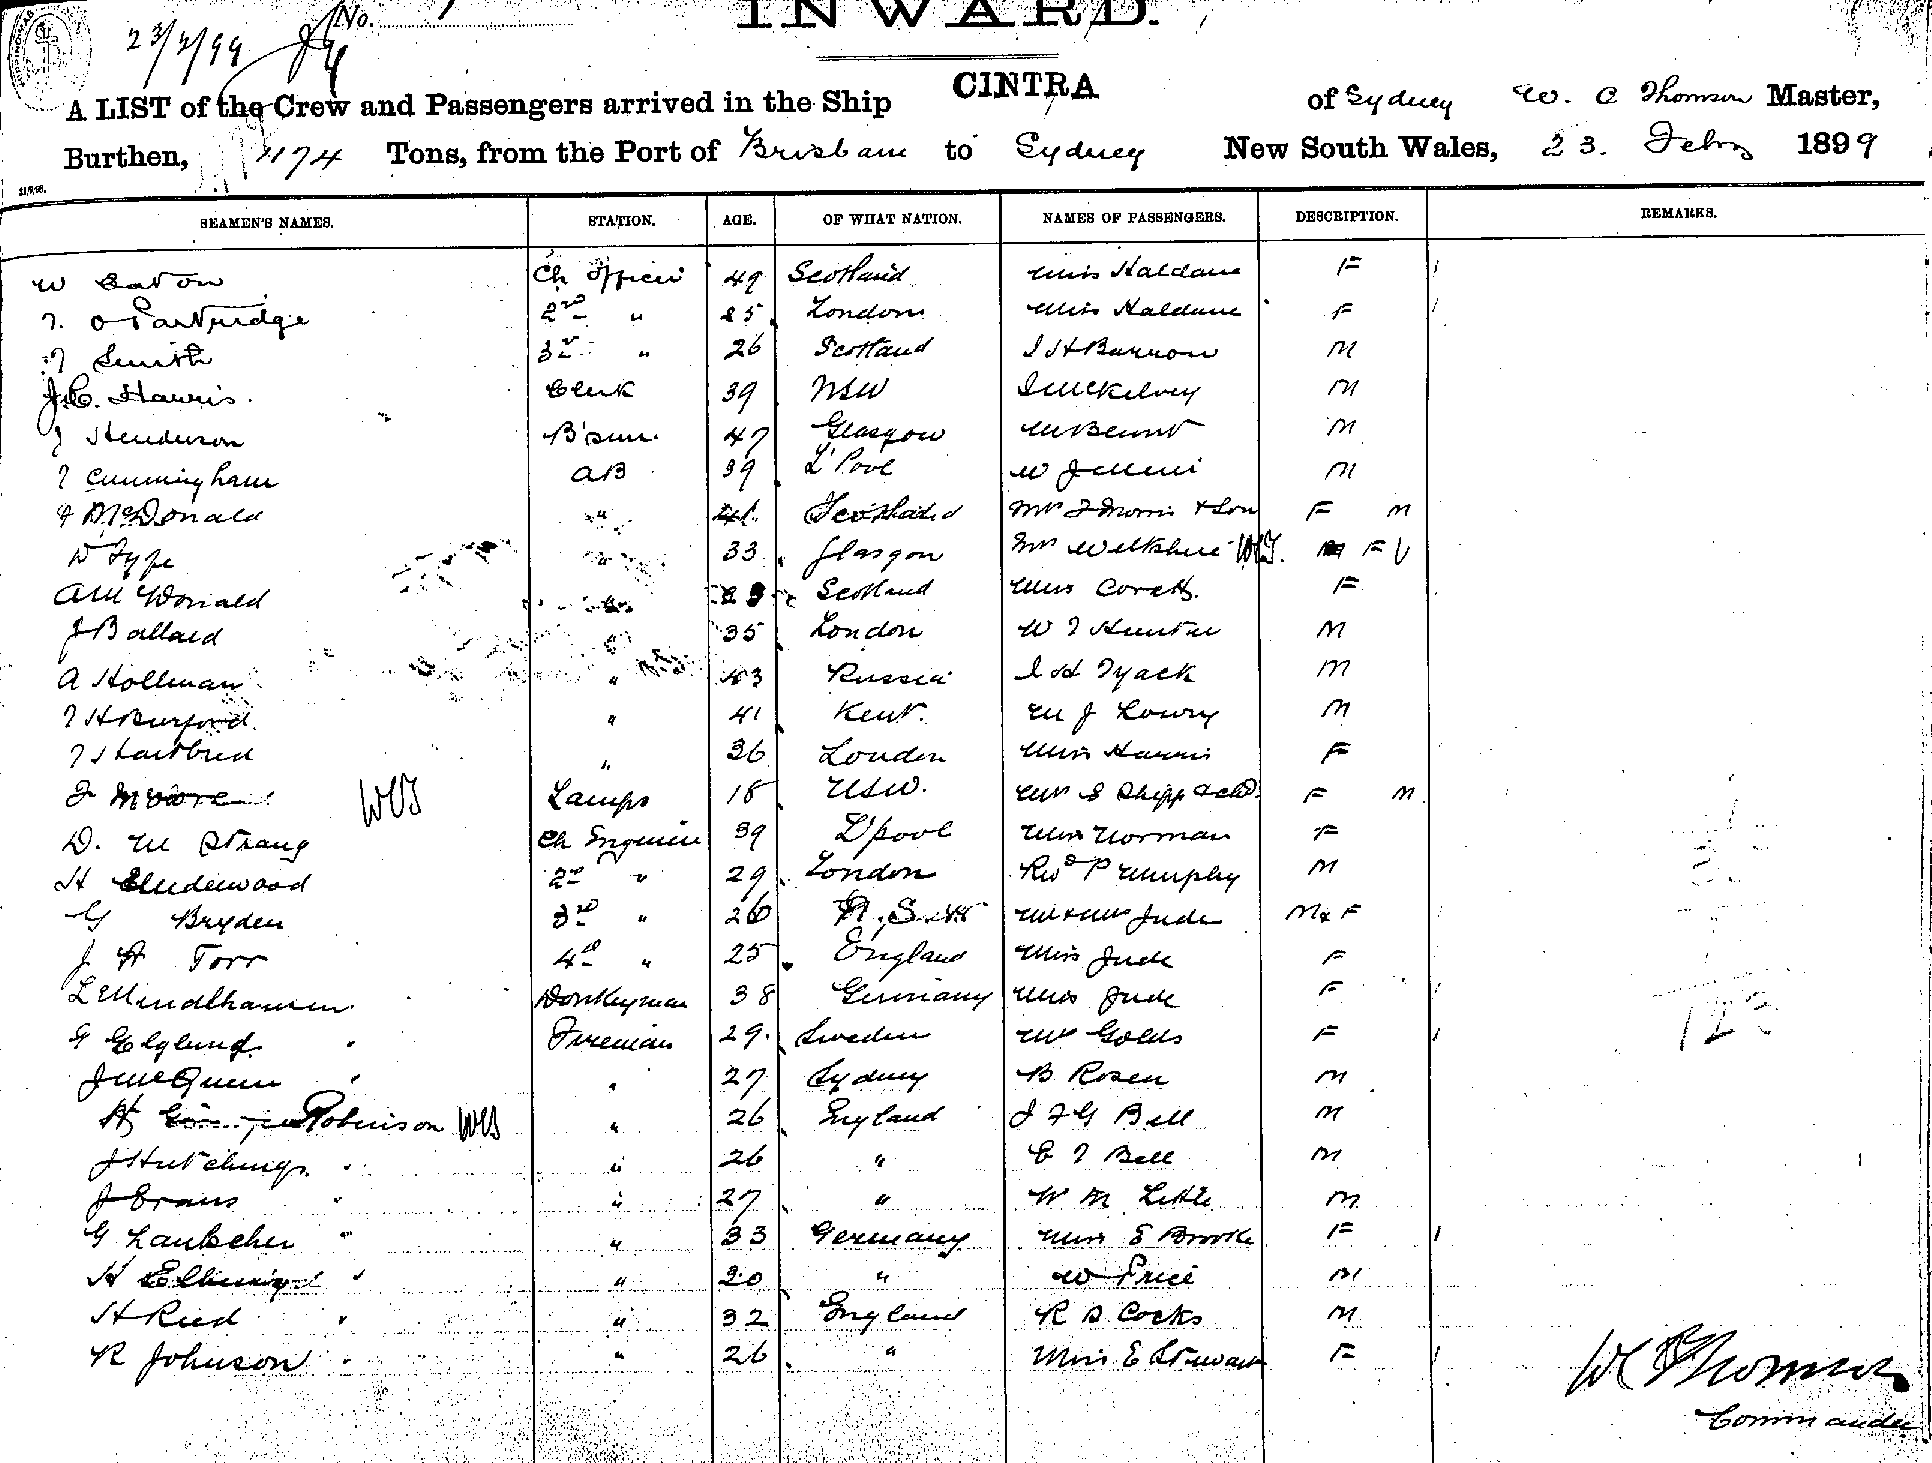 No.
INWARD.
23/2/99
A LIST of the Crew and Passengers arrived in the Ship CINTRA of Sydney W. C Thomson Master,
Burthen, 1174 Tons, from the Port of Brisbane to Sydney New South Wales, 23. Feby 1899
SEAMEN'S NAMES. STATION. AGE. OF WHAT NATION. NAMES OF PASSENGERS. DESCRIPTION. REMARKS.
W Eaton Ch Officer 49 Scotland Miss Haldane F
T. O Partridge 2nd " 25 London Miss Haldane F
Smith 3rd " 26 Scotland J H Barrow M
J.C. Harris. Clerk 39 NSW J McKelvey M
J Henderson B'sun. 47 Glasgow M
T Cunningham AB 39 L'Pool W M
McDonald " Scotland Mrs F Morris & Son F M
W Fype " 33 Glasgow Mrs Wilkshire WCT. F
A McDonald " Scotland Miss F
J Ballard " 35 London W T Hunter M
A Hollman " 43 Russia J H Tyack M
T H Burford. " 41 Kent. M J Lowry M
T Hartbred " 36 London Miss Harris F
F Moore WCT Lamps 18 NSW. Mrs S Shipp & chd. F M
D. M Strang Ch Engineer 39 L'pool Miss Norman F
H Underwood 2nd " 29 London Revd P Murphy M
G Bryden 3rd " 26 Mr & Mrs Jude M & F
J H Torr 4th " 25 England Miss Jude F
L Mindlhausen Donkeyman 38 Germany Miss Jude F
G Elglund Fireman 29. Sweden Mrs Golds F
J McQueen " " 27 Sydney B Rosen M
H Robinson WCT " 26 England J F G Bell M
J Hutchings " " 26 " E T Bell M
J Evans " " 27 " W M Little M
G Laubscher " " 33 Germany Miss E Brooke F
H " " 20 " W Price M
H Ried " " 32 England R S Cocks M
R Johnson " " 26 " Miss E Stewart F
W C Thomson
Commander